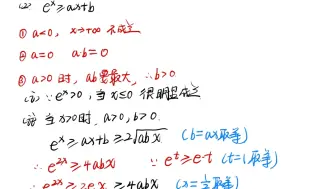 (2) eˣ ≥ ax+b
① a<0, x→+∞ 不成立
② a=0 a·b=0
③ a>0 时, ab要最大, ∴b>0
(i) ∵eˣ>0, 当 x≤0 很明显成立
(ii) 当 x>0时, a>0, b>0.
eˣ ≥ ax+b ≥ 2√abx (b=ax取等)
∴ e²ˣ ≥ 4abx ∵ eᵗ ≥ e·t (t=1取等)
∴ e²ˣ ≥ 2ex ≥ 4abx (x=½取等)